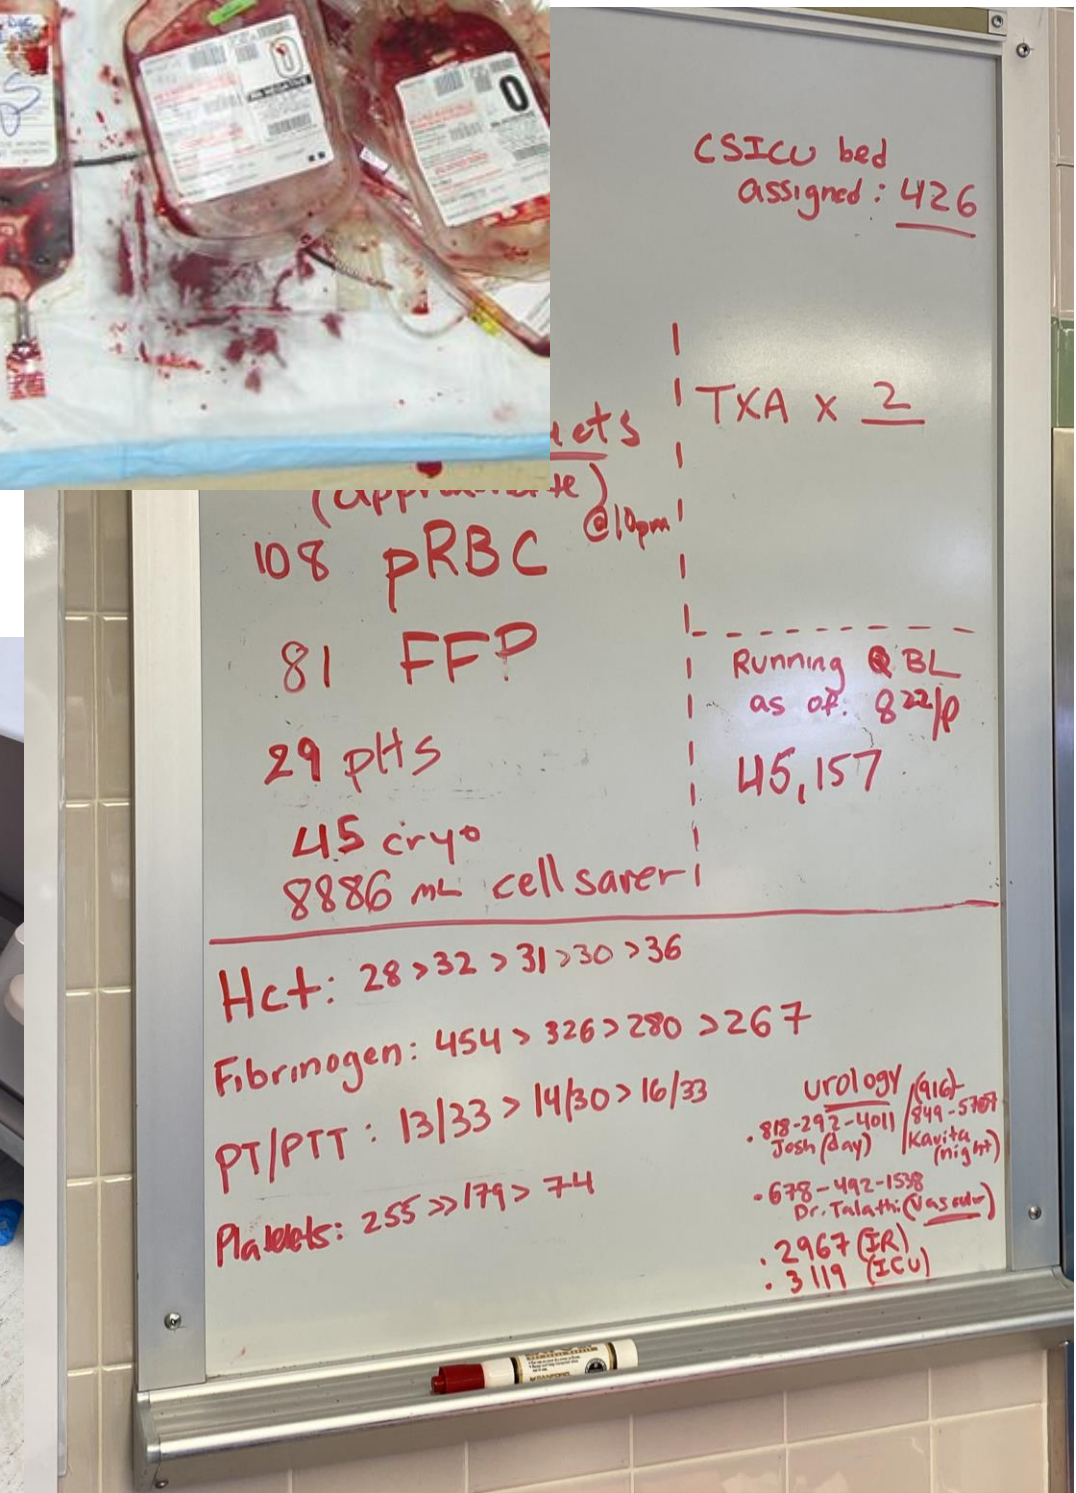 CSICU bed
assigned: 426
TXA x 2
@10pm
108 pRBC
81 FFP
29 plts
45 cryo
8886 mL cell saver
Running QBL
as of: 8²²/p
45,157
Hct: 28 > 32 > 31 > 30 > 36
Fibrinogen: 454 > 326 > 280 > 267
PT/PTT: 13/33 > 14/30 > 16/33
Platelets: 255 >> 179 > 74
urology
818-292-4011
Josh (day)
(916)
Kavita
(night)
678-492-1538
Dr. Talathi (Vascular)
2967 (IR)
3119 (ICU)
O
O
SANFORD